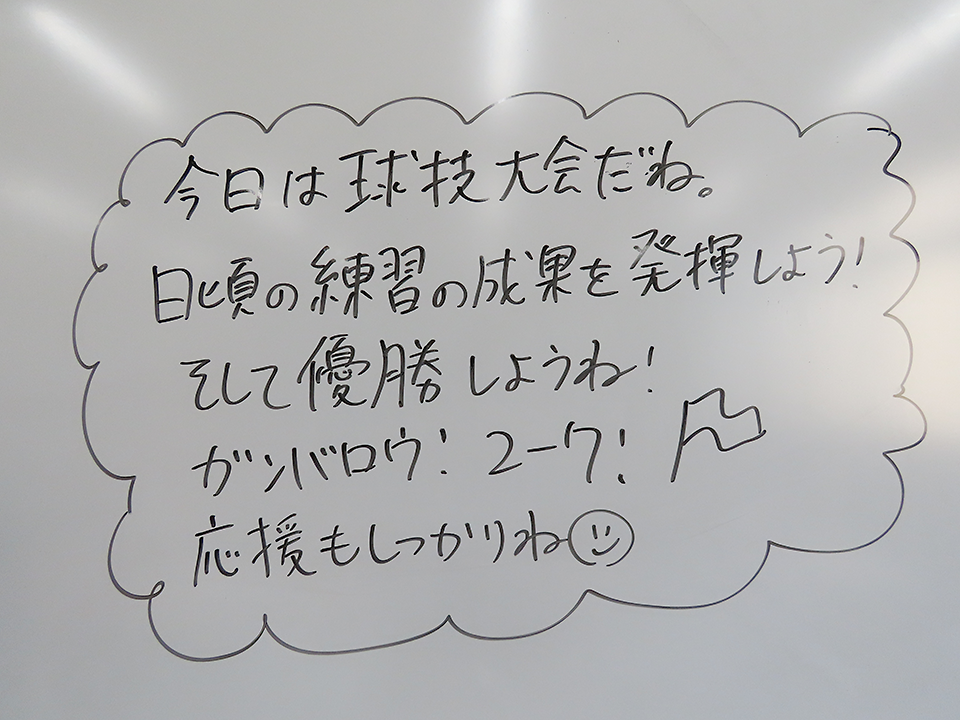 今日は球技大会だね。
日頃の練習の成果を発揮しよう!
そして優勝しようね!
ガンバロウ! 2-7!
応援もしっかりね